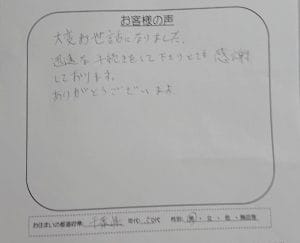 お客様の声
大変お世話になりました。
迅速な手続きをして下さりとても感謝
しております。
ありがとうございます
お住まいの都道府県: 千葉県 年代: 50代 性別: 男・女・他・無回答